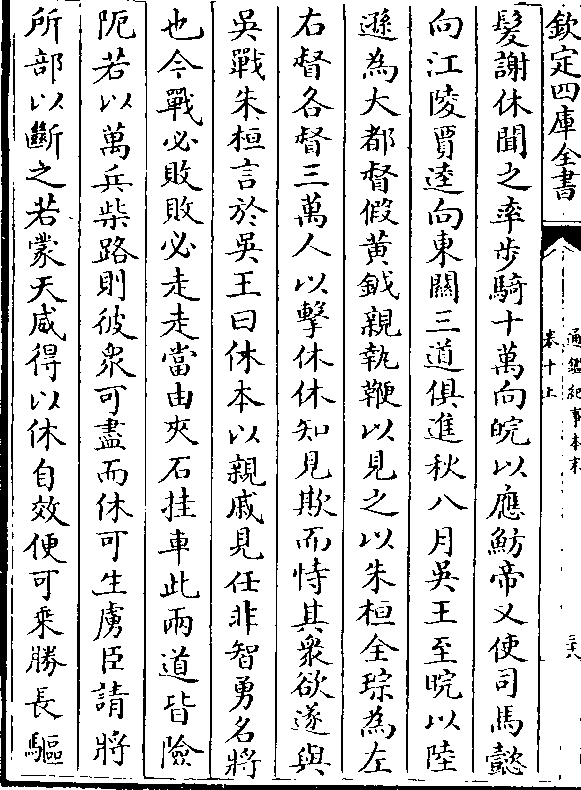 欽定四庫全書
通鑑紀事本末
卷十上
三六
髮謝休聞之率步騎十萬向皖以應魴帝又使司馬懿
向江陵賈逵向東關三道俱進秋八月吳王至皖以陸
遜為大都督假黃鉞親執鞭以見之以朱桓全琮為左
右督各督三萬人以擊休休知見欺而恃其衆欲遂與
吳戰朱桓言於吳王曰休本以親戚見任非智勇名將
也今戰必敗敗必走走當由夾石挂車此兩道皆險
阨若以萬兵柴路則彼衆可盡而休可生虜臣請將
所部以斷之若蒙天威得以休自效便可乗勝長驅